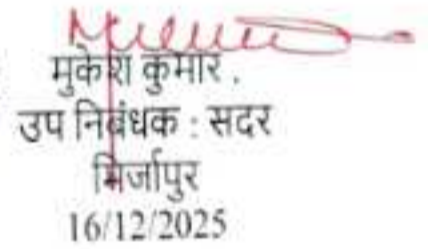 मुकेश कुमार .
उप निबंधक : सदर
मिर्जापुर
16/12/2025